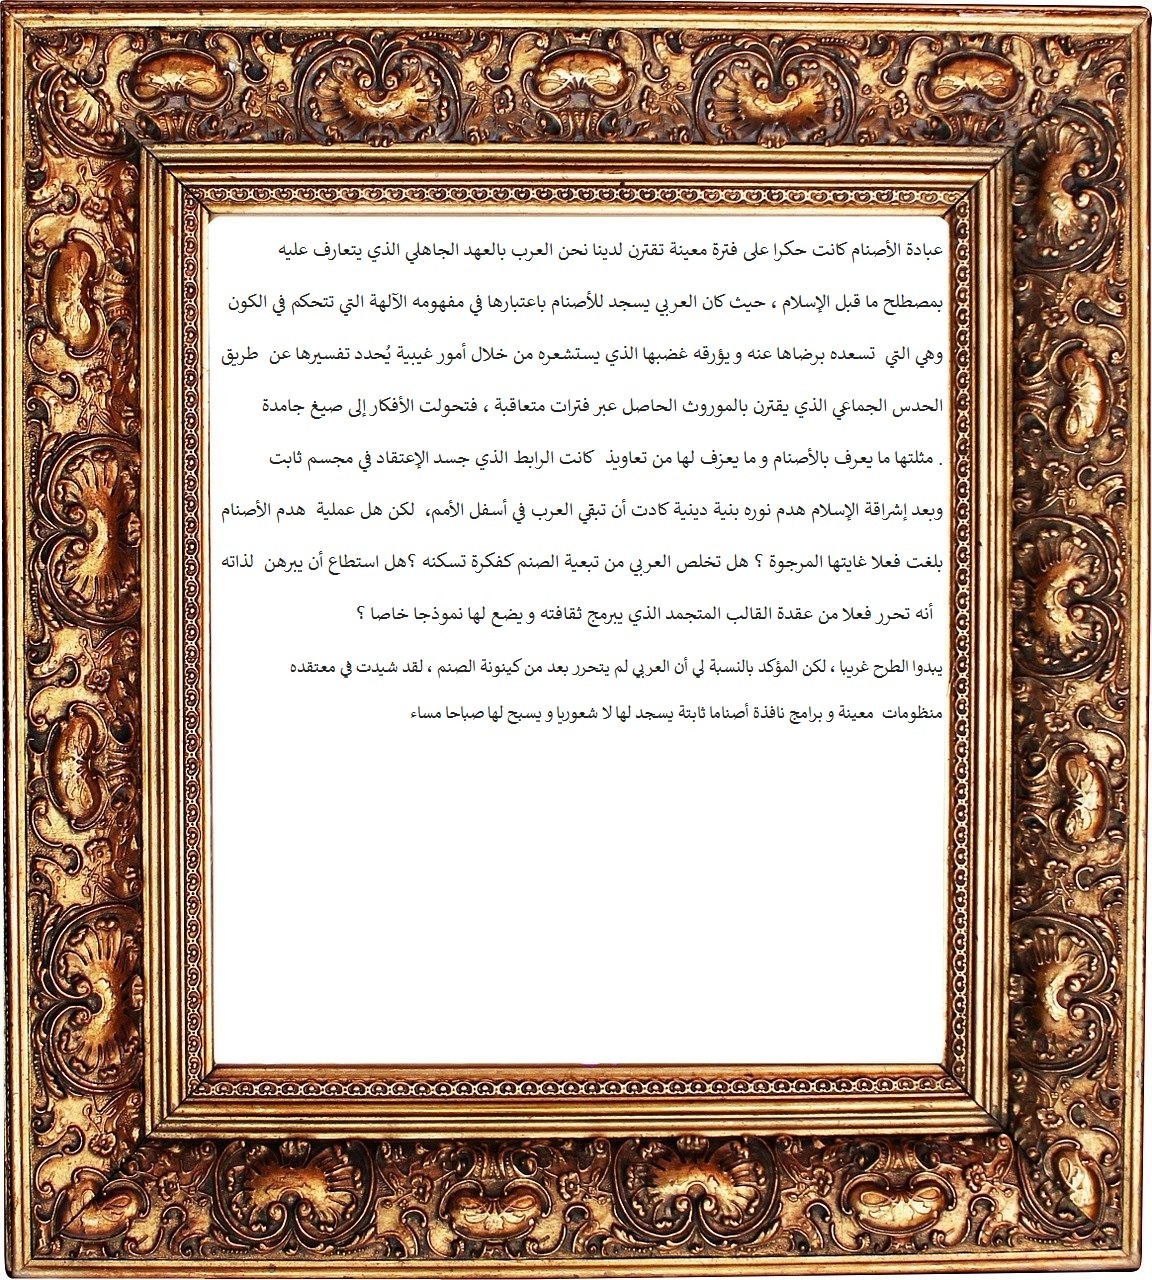 عبادة الأصنام كانت حكرا على فترة معينة تقترن لدينا نحن العرب بالعهد الجاهلي الذي يتعارف عليه
بمصطلح ما قبل الإسلام ، حيث كان العربي يسجد للأصنام باعتبارها في مفهومه الآلهة التي تتحكم في الكون
وهي التي تسعده برضاها عنه و يؤرقه غضبها الذي يستشعره من خلال أمور غيبية يُحدد تفسيرها عن طريق
الحدس الجماعي الذي يقترن بالموروث الحاصل عبر فترات متعاقبة ، فتحولت الأفكار إلى صيغ جامدة
. مثلتها ما يعرف بالأصنام و ما يعزف لها من تعاويذ كانت الرابط الذي جسد الإعتقاد في مجسم ثابت
وبعد إشراقة الإسلام هدم نوره بنية دينية كادت أن تبقي العرب في أسفل الأمم، لكن هل عملية هدم الأصنام
بلغت فعلا غايتها المرجوة ؟ هل تخلص العربي من تبعية الصنم كفكرة تسكنه ؟هل استطاع أن يبرهن لذاته
أنه تحرر فعلا من عقدة القالب المتجمد الذي يبرمج ثقافته و يضع لها نموذجا خاصا ؟
يبدوا الطرح غريبا ، لكن المؤكد بالنسبة لي أن العربي لم يتحرر بعد من كينونة الصنم ، لقد شيدت في معتقده
منظومات معينة و برامج نافذة أصناما ثابتة يسجد لها لا شعوريا و يسبح لها صباحا مساء